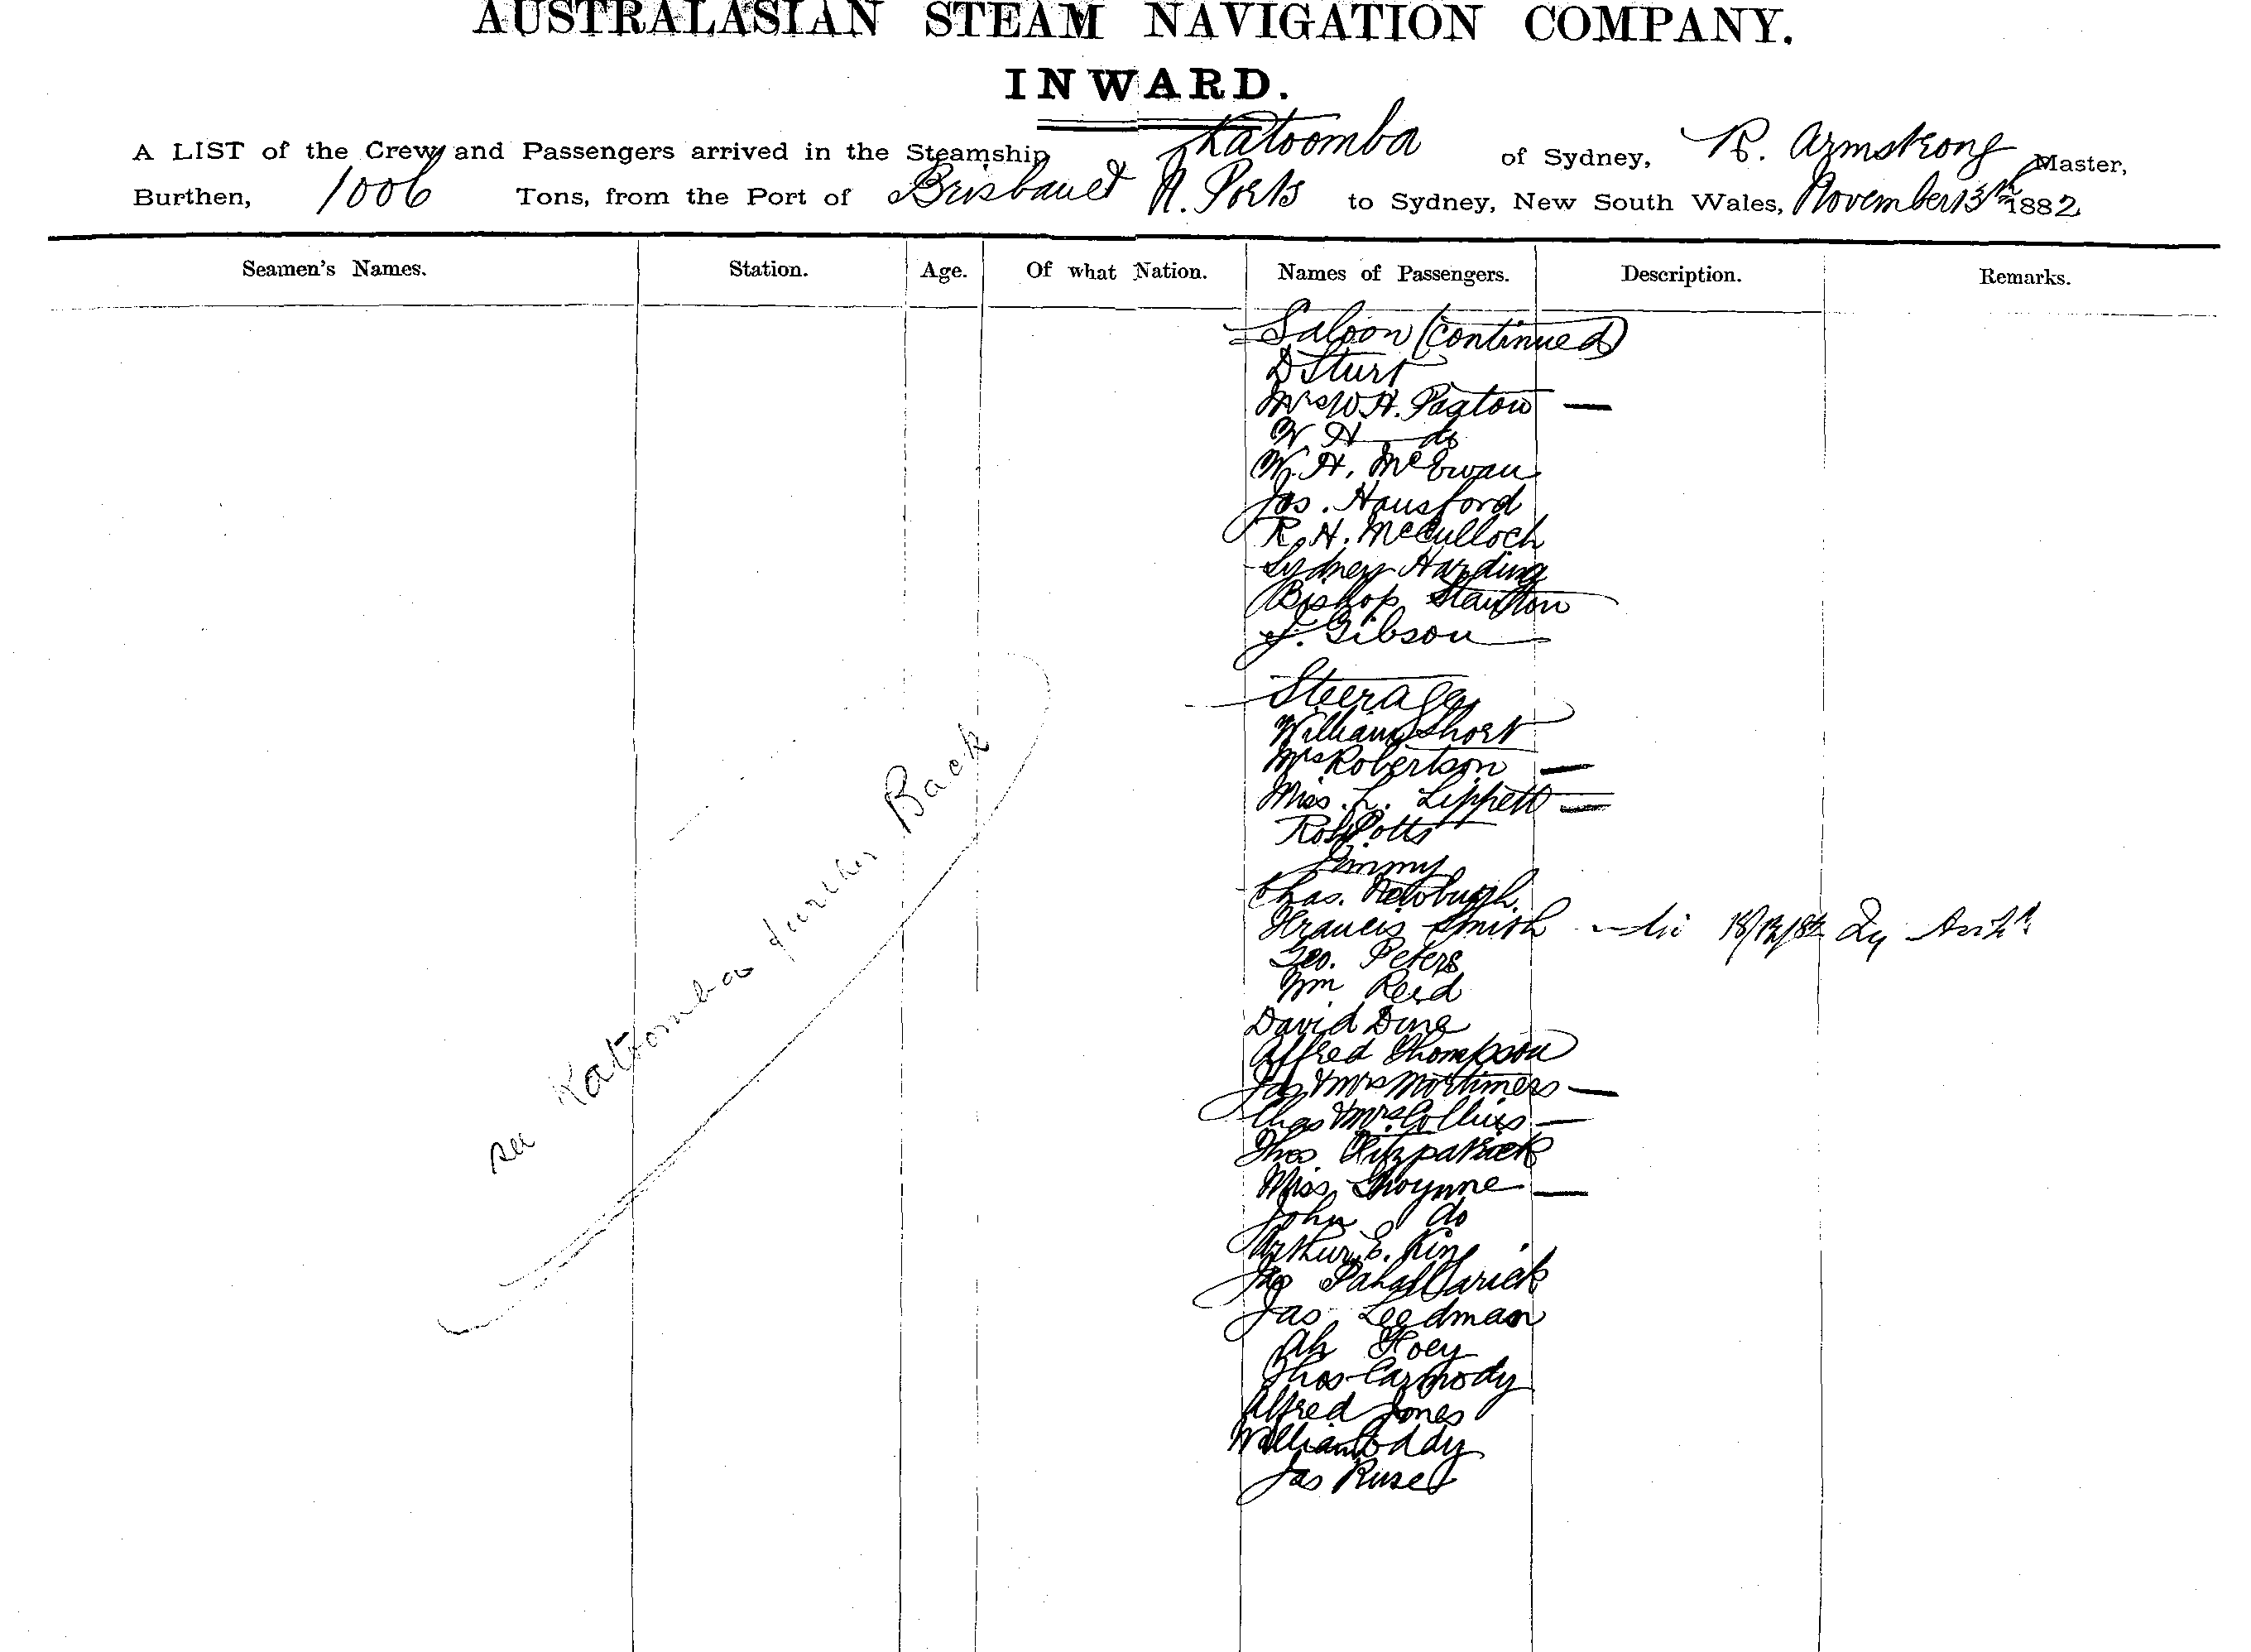 AUSTRALASIAN STEAM NAVIGATION COMPANY.
INWARD.
A LIST of the Crew and Passengers arrived in the Steamship Katoomba of Sydney, R. Armstrong Master,
Burthen, 1006 Tons, from the Port of Brisbane & N. Ports to Sydney, New South Wales, November 13th 1882
Seamen's Names. Station. Age. Of what Nation. Names of Passengers. Description. Remarks.
Saloon (continued)
D Sturt
Mrs W. H. Paxton —
W. H do
W. H. McEwan
Jas. Hansford
R. H. McCulloch
Sydney Harding
Bishop Stanton
J. Gibson
Steerage
William Short
Mrs Robertson —
Miss L. Lippett —
Robt Potts
Jimmy
Chas. Newbugh
Francis Smith 18/12/82
Geo. Peters
Wm Reid
David Dune
Alfred Thompson
Jas & Mrs Mortimers —
Chas & Mrs Collins —
Thos Fitzpatrick
Miss Gwynne —
John do
Arthur E. King
Jno
Jas Leedman
Ah Hoey
Thos Carmody
Alfred Jones
William Oddy
Jas Ruse
see Katoomba further Back